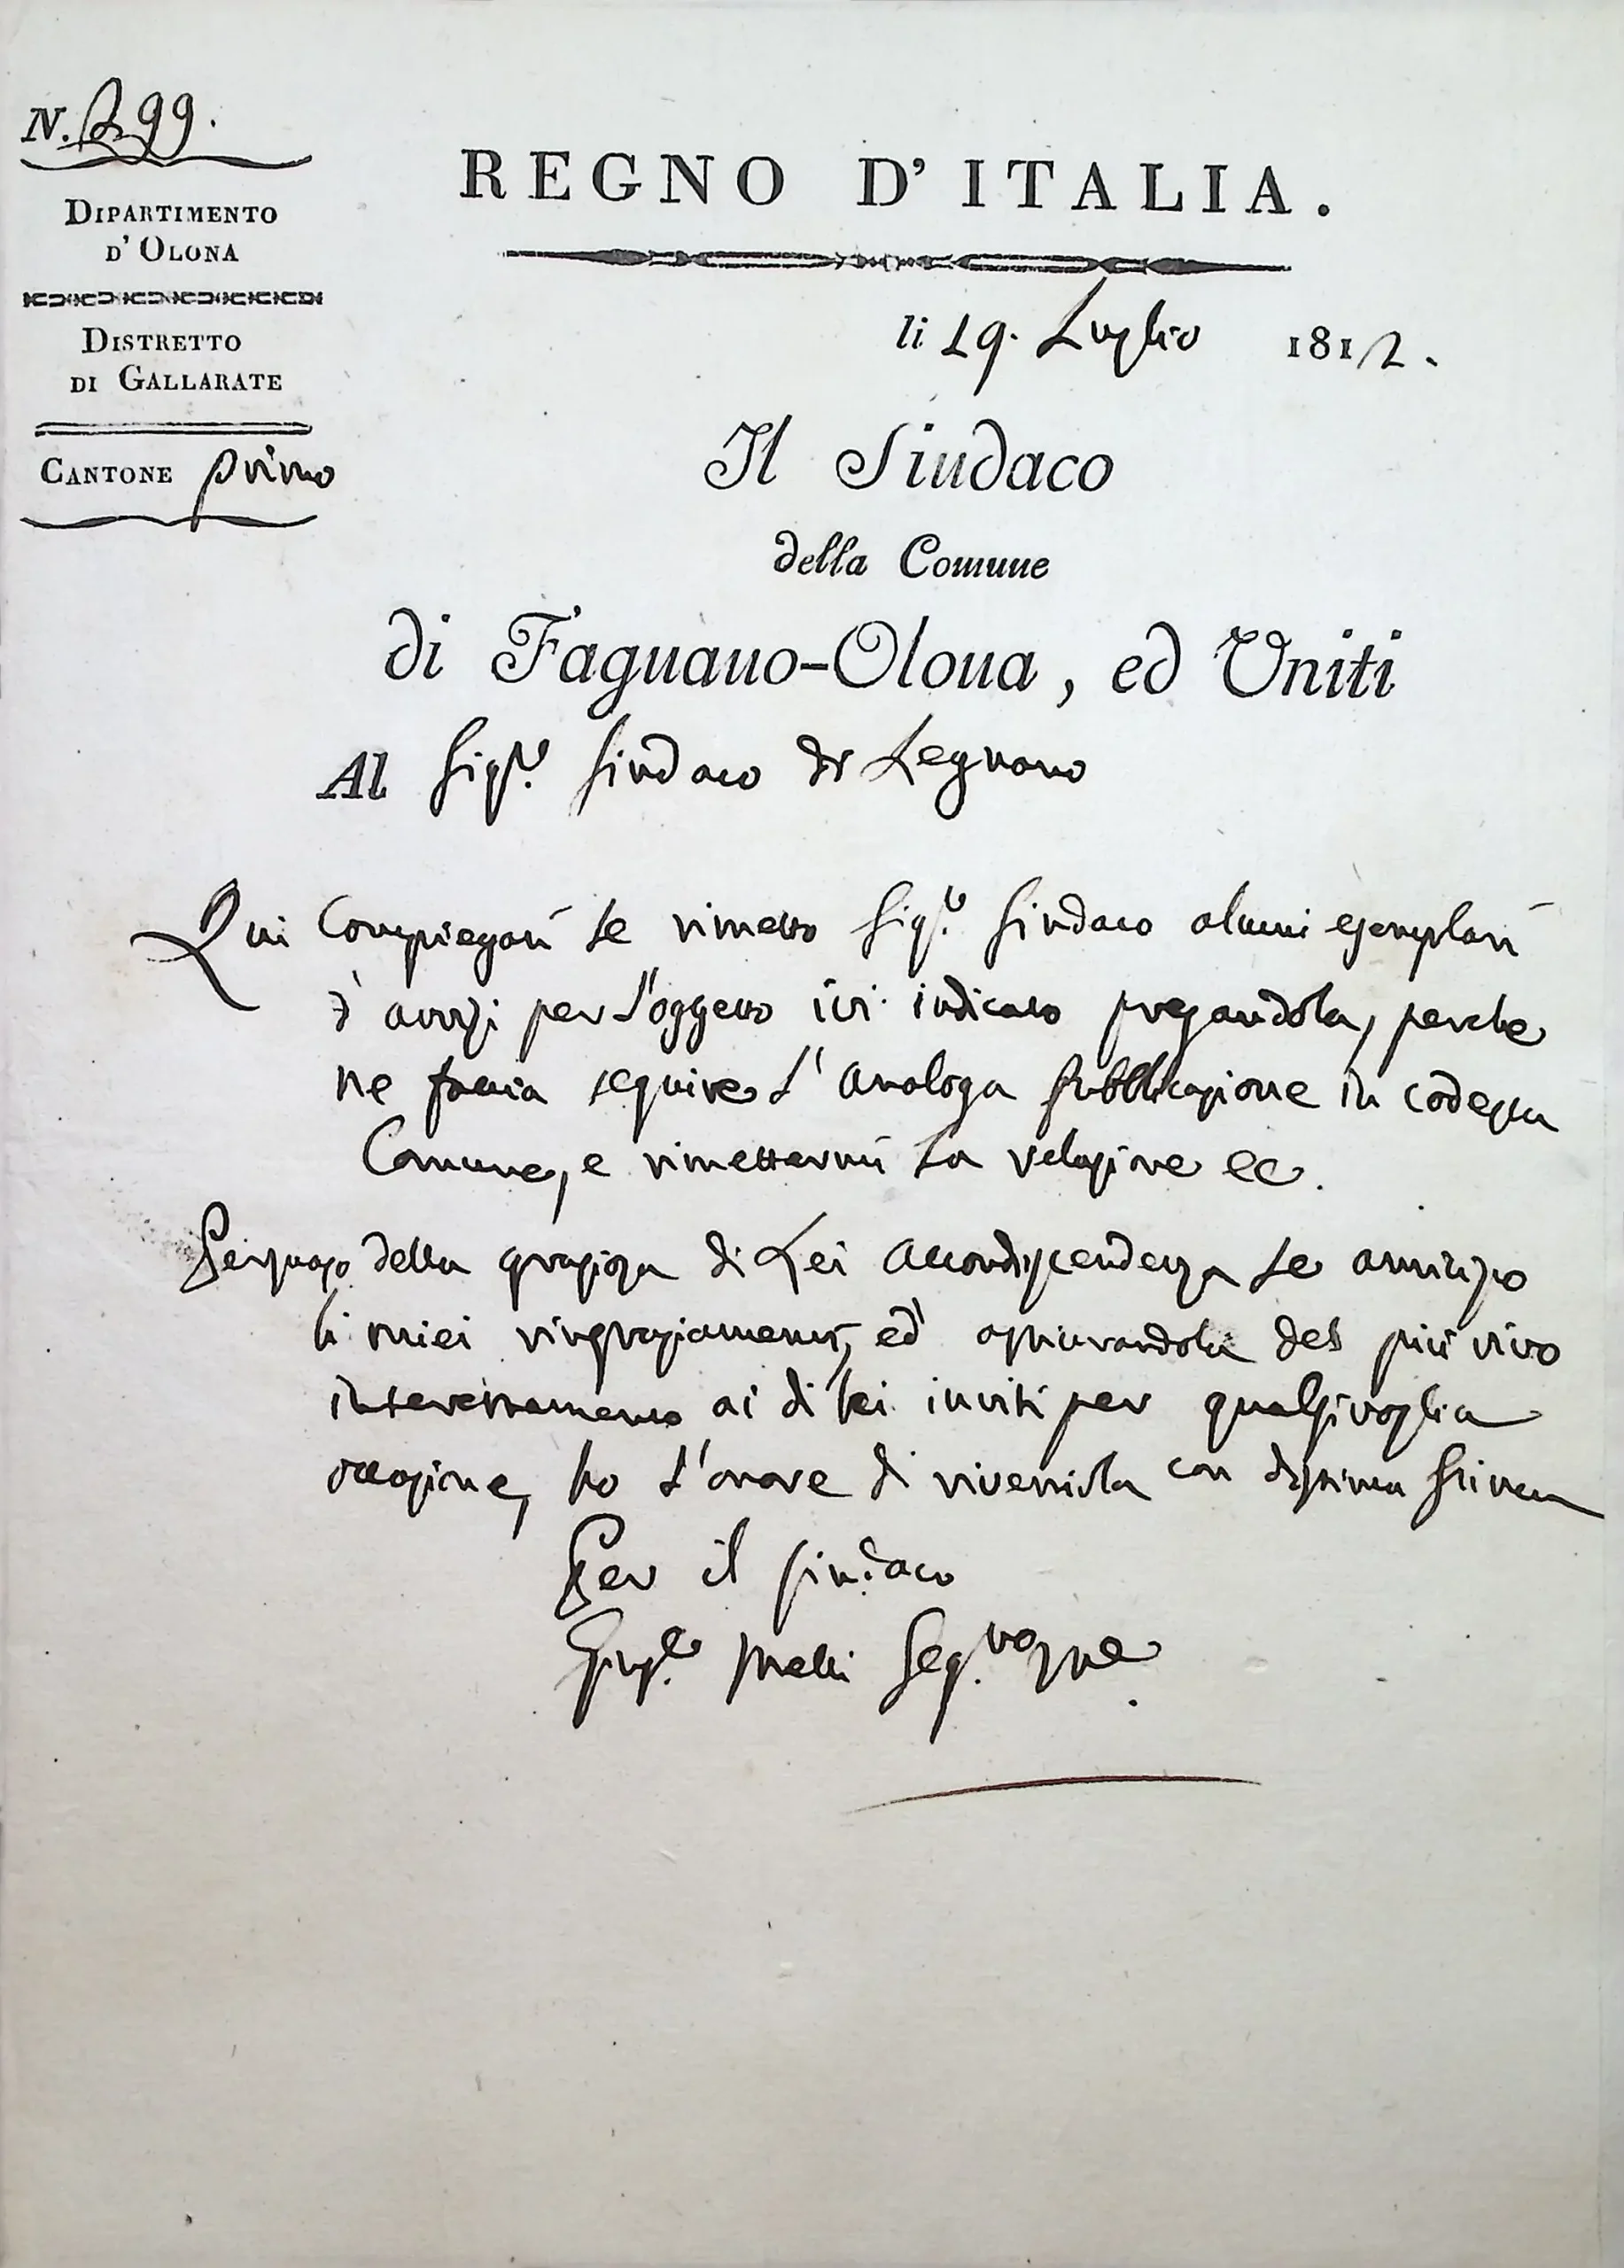 N. 299.
DIPARTIMENTO
D' OLONA
DISTRETTO
DI GALLARATE
CANTONE primo
REGNO D'ITALIA.
li 19. Luglio 1812.
Il Sindaco
della Comune
di Fagnano-Olona, ed Uniti
Al Sigr. Sindaco di Legnano
Qui Compiegati Le rimetto Sigr. Sindaco alcuni esemplari
d'avvisi per l'oggetto ivi indicato pregandola, perche
ne faccia seguire l'analoga pubblicazione in codesta
Comune, e rimettermi La relazione ec.
Persuaso della graziosa di Lei accondiscendenza Le anticipo
li miei ringraziamenti, ed assicurandola del più vivo
interessamento ai di Lei inviti per qualsivoglia
occasione, ho l'onore di riverirla con distinta stima
Per il Sindaco
Melli Seg.